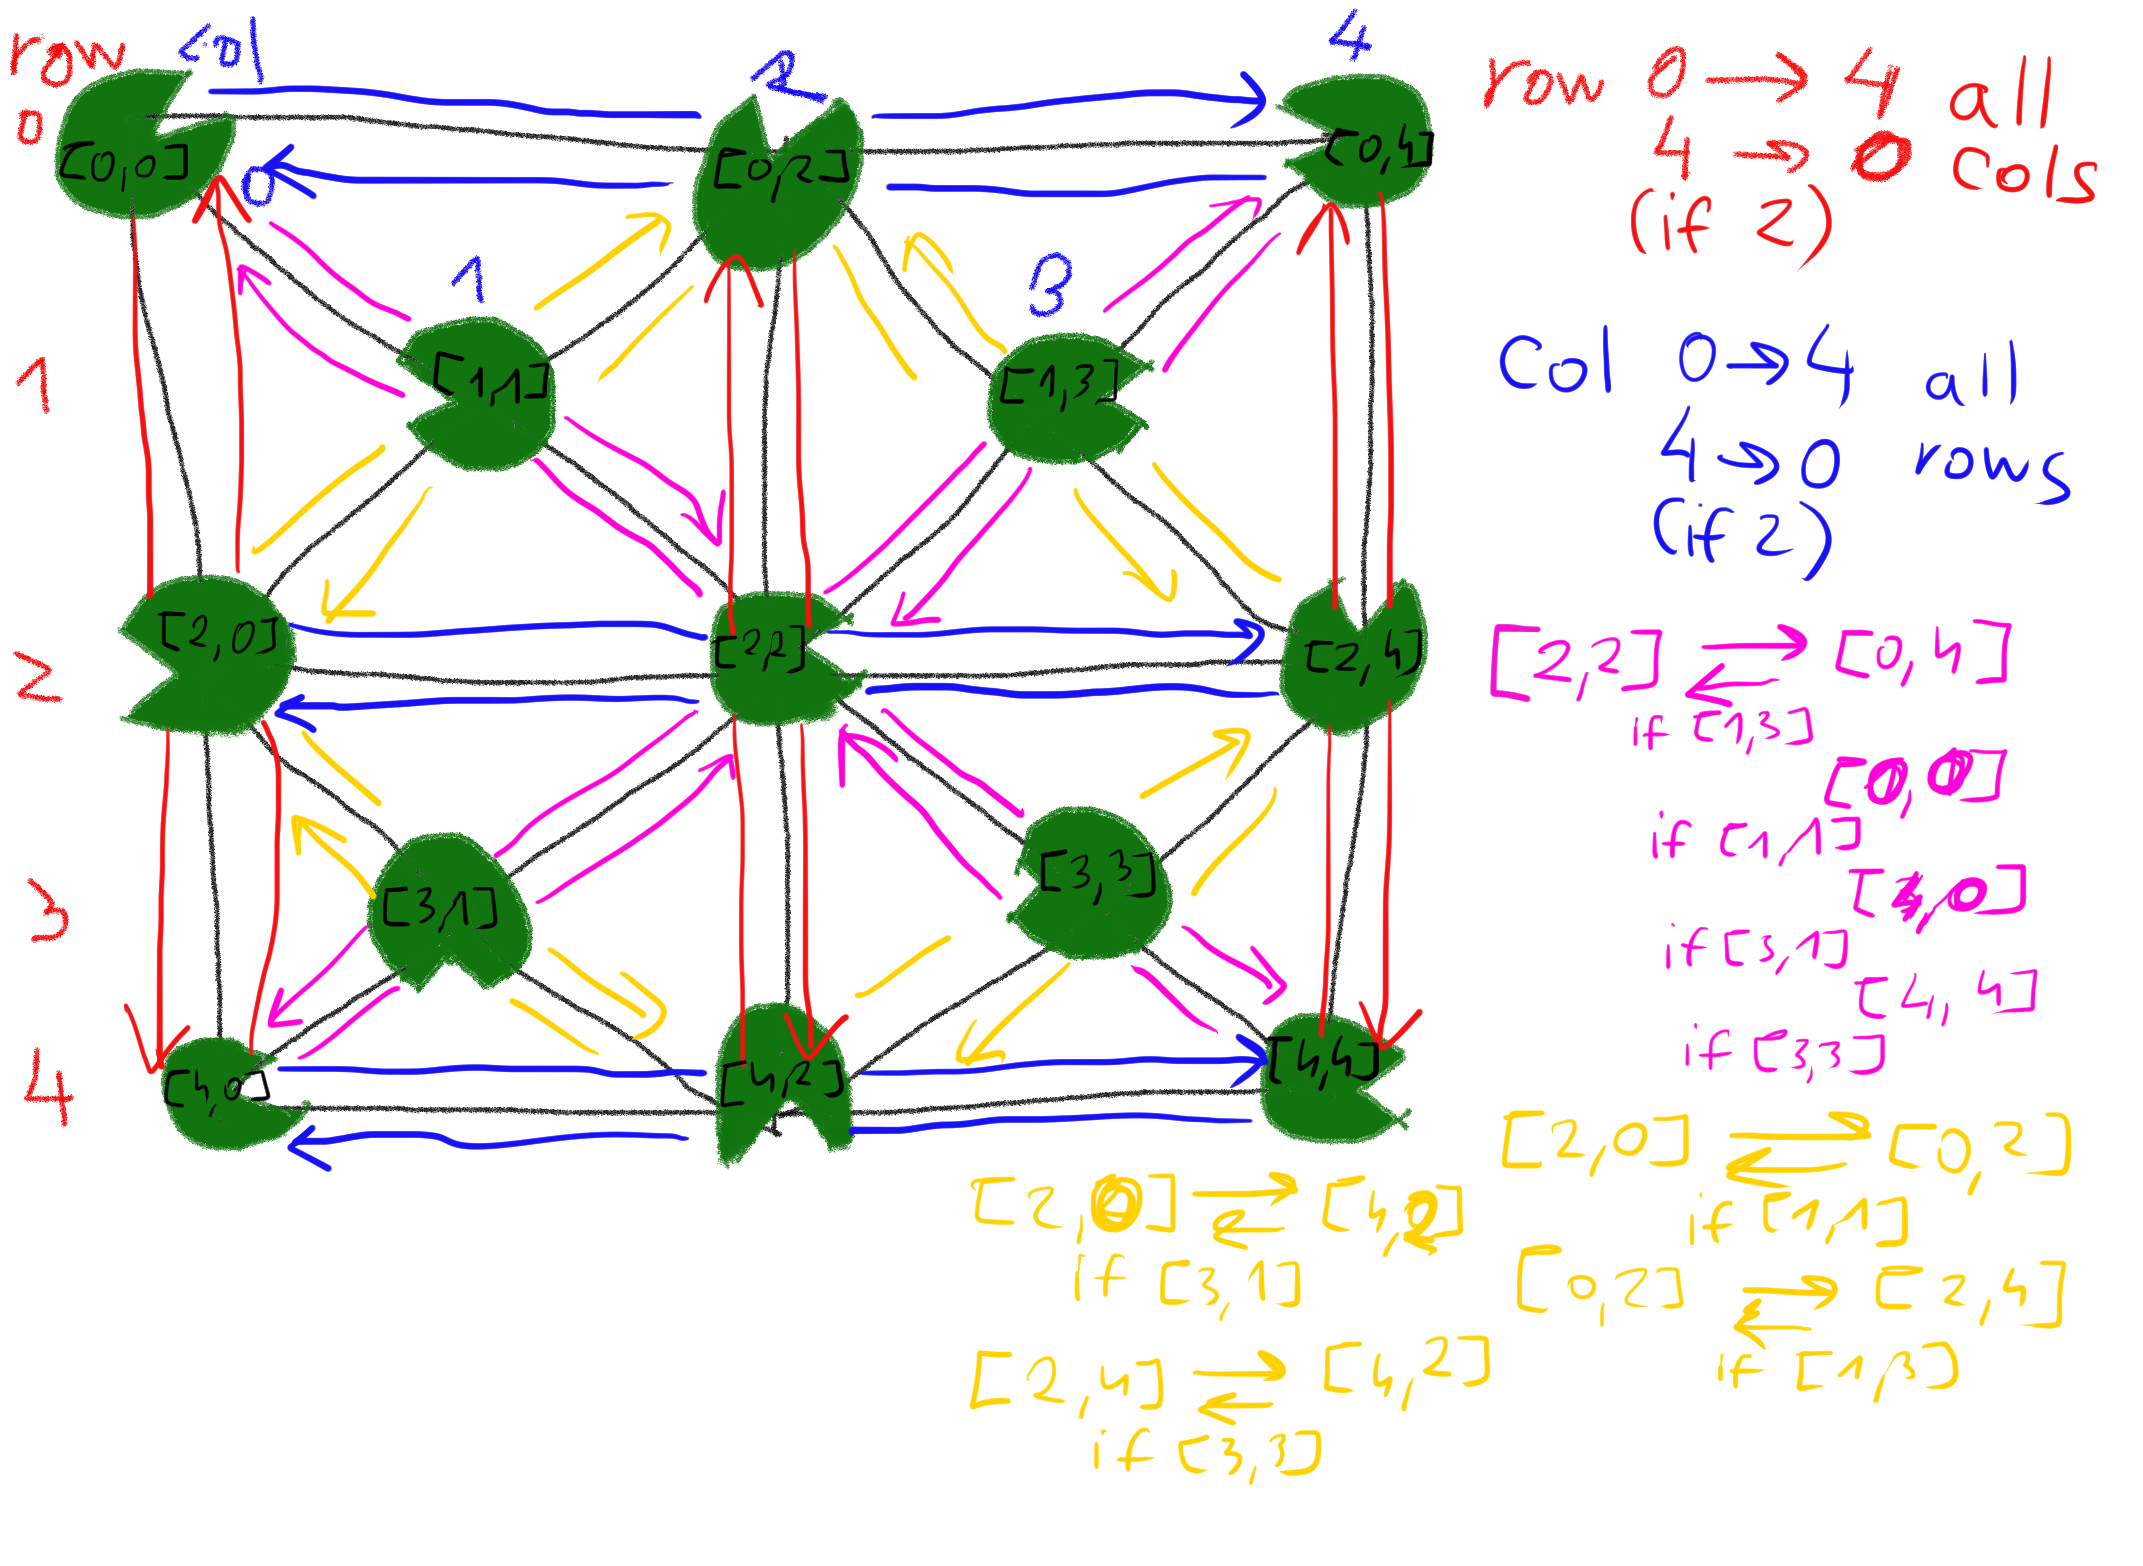 row col 2 4
0 [0,0] 0 [0,2] [0,4]
1 3
1 [1,1] [1,3]
2 [2,0] [2,2] [2,4]
3 [3,1] [3,3]
4 [4,0] [4,2] [4,4]
row 0 → 4 all
4 → 0 cols
(if 2)
col 0 → 4 all
4 → 0 rows
(if 2)
[2,2] ⇄ [0,4]
if [1,3]
[0,0]
if [1,1]
[4,0]
if [3,1]
[4,4]
if [3,3]
[2,0] ⇄ [0,2]
if [1,1]
[0,2] ⇄ [2,4]
if [1,3]
[2,0] ⇄ [4,2]
if [3,1]
[2,4] ⇄ [4,2]
if [3,3]